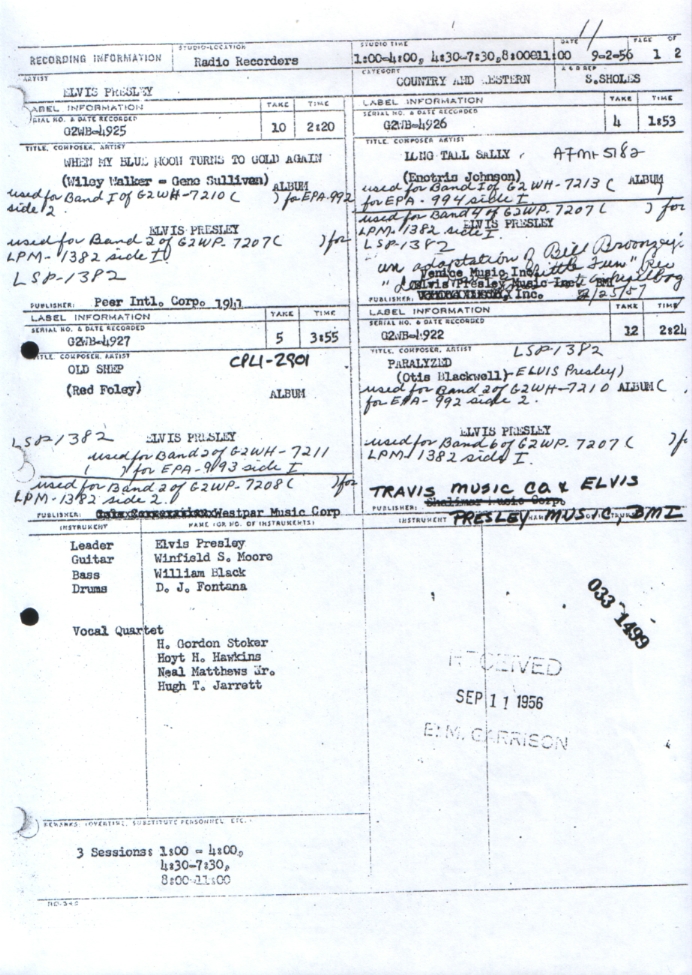 RECORDING INFORMATION
STUDIO-LOCATION
Radio Recorders
STUDIO TIME
1:00-4:00, 4:30-7:30,8:00011:00
DATE
11
9-2-56
PAGE OF
1 2
ARTIST
ELVIS PRESLEY
CATEGORY
COUNTRY AND WESTERN
S.SHOLES
LABEL INFORMATION
TAKE
TIME
SERIAL NO. & DATE RECORDED
G2WB-4925
10
2:20
TITLE, COMPOSER, ARTIST
WHEN MY BLUE MOON TURNS TO GOLD AGAIN
(Wiley Walker - Gene Sullivan)
ALBUM
used for Band I of G2WH-7210 ( ) for EPA-992
side 2.
ELVIS PRESLEY
used for Band 2 of G2WP-7207 ( ) for
LPM-1382 side I.
LSP-1382
PUBLISHER: Peer Intl. Corp. 1941
LABEL INFORMATION
TAKE
TIME
SERIAL NO. & DATE RECORDED
G2WB-4926
4
1:53
TITLE, COMPOSER, ARTIST
LONG TALL SALLY
(Enotris Johnson)
ALBUM
used for Band I of G2WH-7213 (
for EPA-994 side I.
used for Band 4 of G2WP-7207 ( ) for
ELVIS PRESLEY
LPM-1382 side I.
LSP-1382
an adaptation of Bill Broonzy's
Venice Music Inc.
Elvis Presley Music Inc. BMI
Inc.
PUBLISHER:
LABEL INFORMATION
TAKE
TIME
SERIAL NO. & DATE RECORDED
G2WB-4927
5
3:55
TITLE, COMPOSER, ARTIST
CPL1-2901
OLD SHEP
(Red Foley)
ALBUM
LSP-1382
ELVIS PRESLEY
used for Band 2 of G2WH-7211
( ) for EPA-993 side I.
used for Band 2 of G2WP-7208 ( ) for
LPM-1382 side 2.
PUBLISHER: Westpar Music Corp
LABEL INFORMATION
TAKE
TIME
SERIAL NO. & DATE RECORDED
G2WB-4922
12
2:24
TITLE, COMPOSER, ARTIST
LSP-1382
PARALYZED
(Otis Blackwell)-ELVIS Presley)
used for Band 2 of G2WH-7210 ALBUM (
for EPA-992 side 2.
ELVIS PRESLEY
used for Band 6 of G2WP-7207 ( )
LPM-1382 side I.
TRAVIS MUSIC CO. & ELVIS
Shalimar Music Corp.
PUBLISHER:
PRESLEY MUSIC, BMI
INSTRUMENT
NAME (OR NO. OF INSTRUMENTS)
INSTRUMENT
Leader Elvis Presley
Guitar Winfield S. Moore
Bass William Black
Drums D. J. Fontana
Vocal Quartet
H. Gordon Stoker
Hoyt H. Hawkins
Neal Matthews Jr.
Hugh T. Jarrett
033 1499
RECEIVED
SEP 11 1956
E. M. GARRISON
REMARKS, SUBSTITUTE PERSONNEL, ETC.
3 Sessions: 1:00 - 4:00,
4:30-7:30,
8:00-11:00